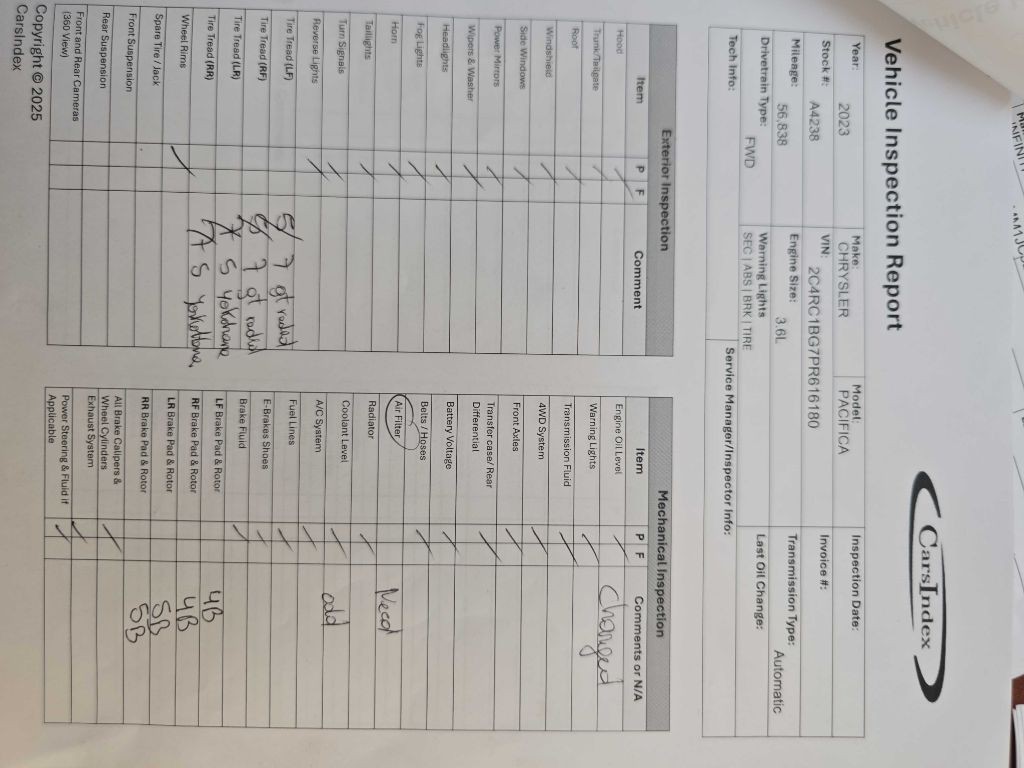 Vehicle Inspection Report
CARSINDEX
Year: 2023 Make: CHRYSLER Model: PACIFICA Inspection Date:
Stock #: A4238 VIN: 2C4RC1BG7PR616180 Invoice #:
Mileage: 56,838 Engine Size: 3.6L Transmission Type: Automatic
Drivetrain Type: FWD Warning Lights SEC | ABS | BRK | TIRE Last Oil Change:
Tech Info: Service Manager/Inspector Info:
Exterior Inspection
Item P F Comment
Hood
Trunk/Tailgate
Roof
Windshield
Side Windows
Power Mirrors
Wipers & Washer
Headlights
Fog Lights
Horn
Taillights
Turn Signals
Reverse Lights
Tire Tread (LF) 7 gt radial
Tire Tread (RF) 7 gt radial
Tire Tread (LR) 5 yokohama
Tire Tread (RR) 5 yokohama
Wheel Rims
Spare Tire / Jack
Front Suspension
Rear Suspension
Front and Rear Cameras
(360 View)
Mechanical Inspection
Item P F Comments or N/A
Engine Oil Level Changed
Warning Lights
Transmission Fluid
4WD System
Front Axles
Transfer case/ Rear
Differential
Battery Voltage
Belts / Hoses
Air Filter Need
Radiator
Coolant Level add
A/C System
Fuel Lines
E-Brakes Shoes
Brake Fluid
LF Brake Pad & Rotor 4B
RF Brake Pad & Rotor 4B
LR Brake Pad & Rotor 5B
RR Brake Pad & Rotor 5B
All Brake Calipers &
Wheel Cylinders
Exhaust System
Power Steering & Fluid if
Applicable
Copyright © 2025
CarsIndex
INFINITI